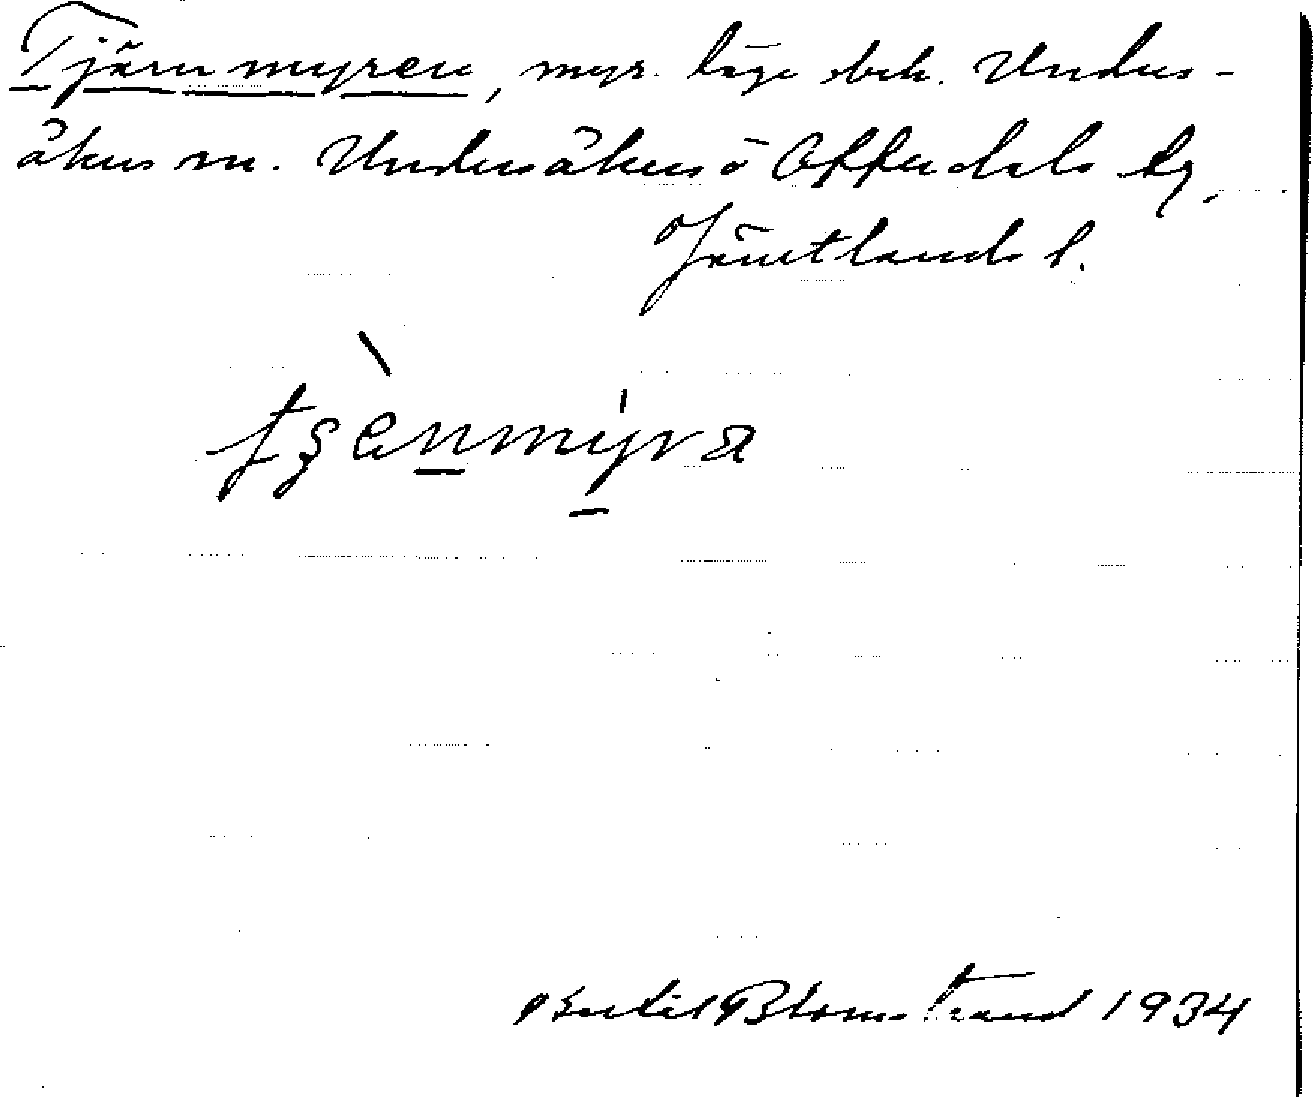 Tjärnmyren, myr. läge obek. Unders-
åkers sn. Undersåkers o Offerdals tg,
Jämtlands l.
tşènmýra
Bertil Blomstrand 1934